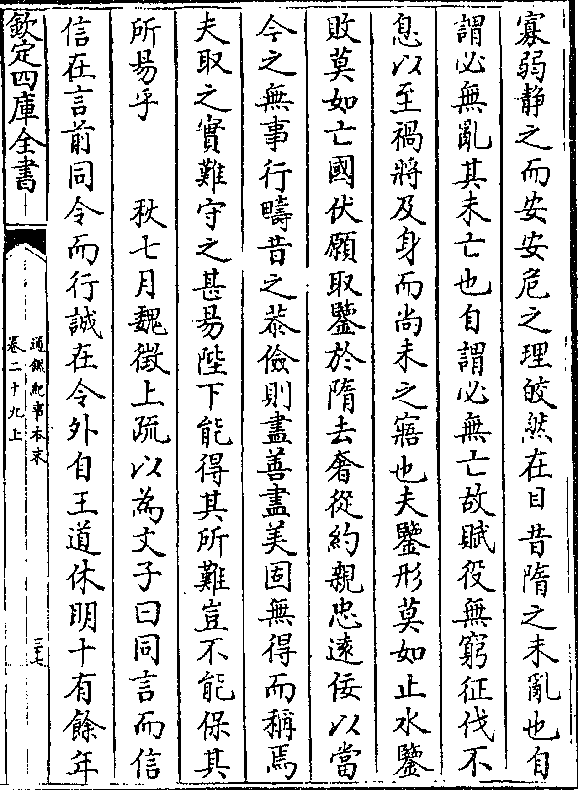 寡弱静之而安安危之理皎然在目昔隋之未亂也自
謂必無亂其未亡也自謂必無亡故賦役無窮征伐不
息以至禍將及身而尚未之寤也夫鑒形莫如止水鑒
敗莫如亡國伏願取鑒於隋去奢從約親忠逺佞以當
今之無事行疇昔之恭儉則盡善盡美固無得而稱焉
夫取之實難守之甚易陛下能得其所難豈不能保其
所易乎　　秋七月魏徵上疏以為文子曰同言而信
信在言前同令而行誠在令外自王道休明十有餘年
欽定四庫全書
通鑑紀事本末
卷二十九上
三十七